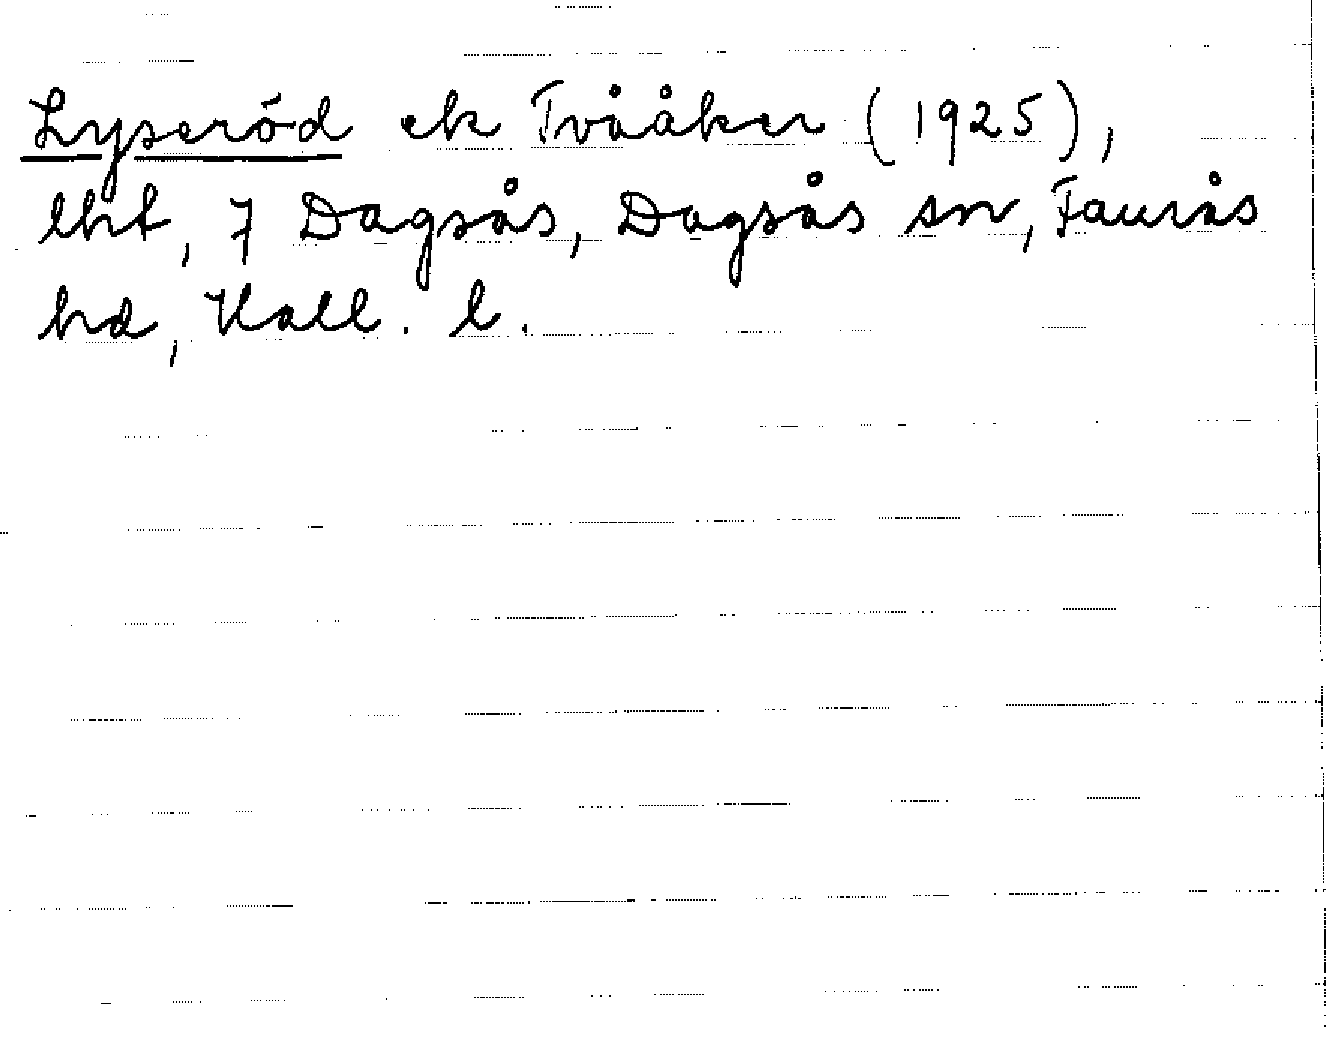 Lyseröd ek Tvååker (1925),
lht, 7 Dagsås, Dagsås sn, Faurås
hd, Hall. l.